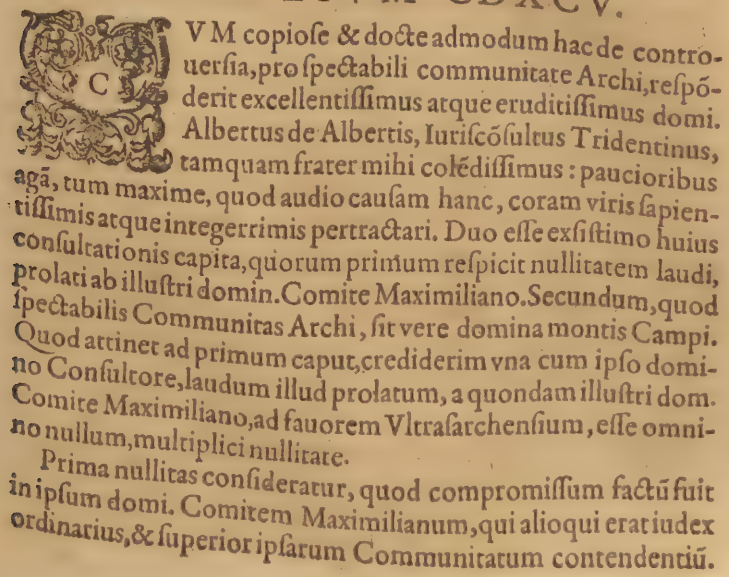 CVM copioſe & docte admodum hac de contro-
uerſia, pro ſpectabili communitate Archi, reſpõ-
derit excellentiſſimus atque eruditiſſimus domi.
Albertus de Albertis, Iuriſcõſultus Tridentinus,
tamquam frater mihi colẽdiſſimus : paucioribus
agã, tum maxime, quod audio cauſam hanc, coram viris ſapien-
tiſſimis atque integerrimis pertractari. Duo eſſe exſiſtimo huius
conſultationis capita, quorum primum reſpicit nullitatem laudi,
prolati ab illuſtri domin. Comite Maximiliano. Secundum, quod
ſpectabilis Communitas Archi, ſit vere domina montis Campi.
Quod attinet ad primum caput, crediderim vna cum ipſo domi-
no Conſultore, laudum illud prolatum, a quondam illuſtri dom.
Comite Maximiliano, ad fauorem Vltraſarchenſium, eſſe omni-
no nullum, multiplici nullitate.
Prima nullitas conſideratur, quod compromiſſum factũ fuit
in ipſum domi. Comitem Maximilianum, qui alioqui erat iudex
ordinarius, & ſuperior ipſarum Communitatum contendentiũ.